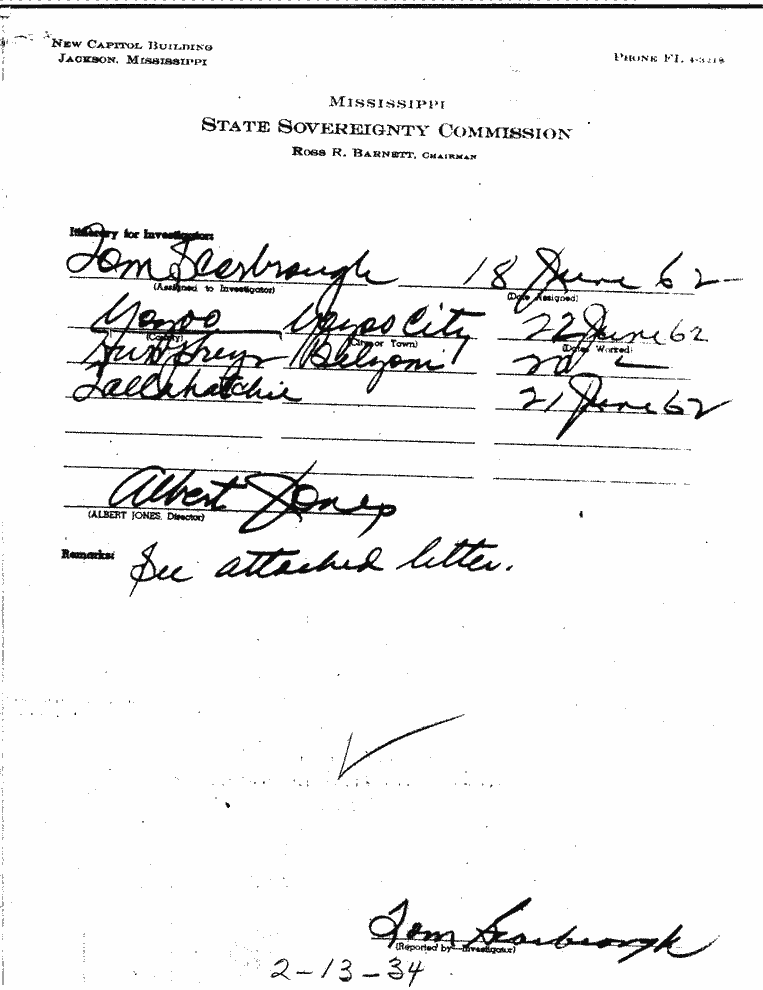 NEW CAPITOL BUILDING
JACKSON, MISSISSIPPI
PHONE FL 4-3218
MISSISSIPPI
STATE SOVEREIGNTY COMMISSION
ROSS R. BARNETT, CHAIRMAN
Itinerary for Investigator:
Tom Scarbrough 18 June 62
(Assigned to Investigator) (Date Assigned)
Yazoo Yazoo City 22 June 62
(County) (City or Town) (Dates Worked)
Humphreys Belzoni
Tallahatchie 21 June 62
Albert Jones
(ALBERT JONES, Director)
Remarks: See attached letter.
Tom Scarbrough
(Reported by Investigator)
2-13-34